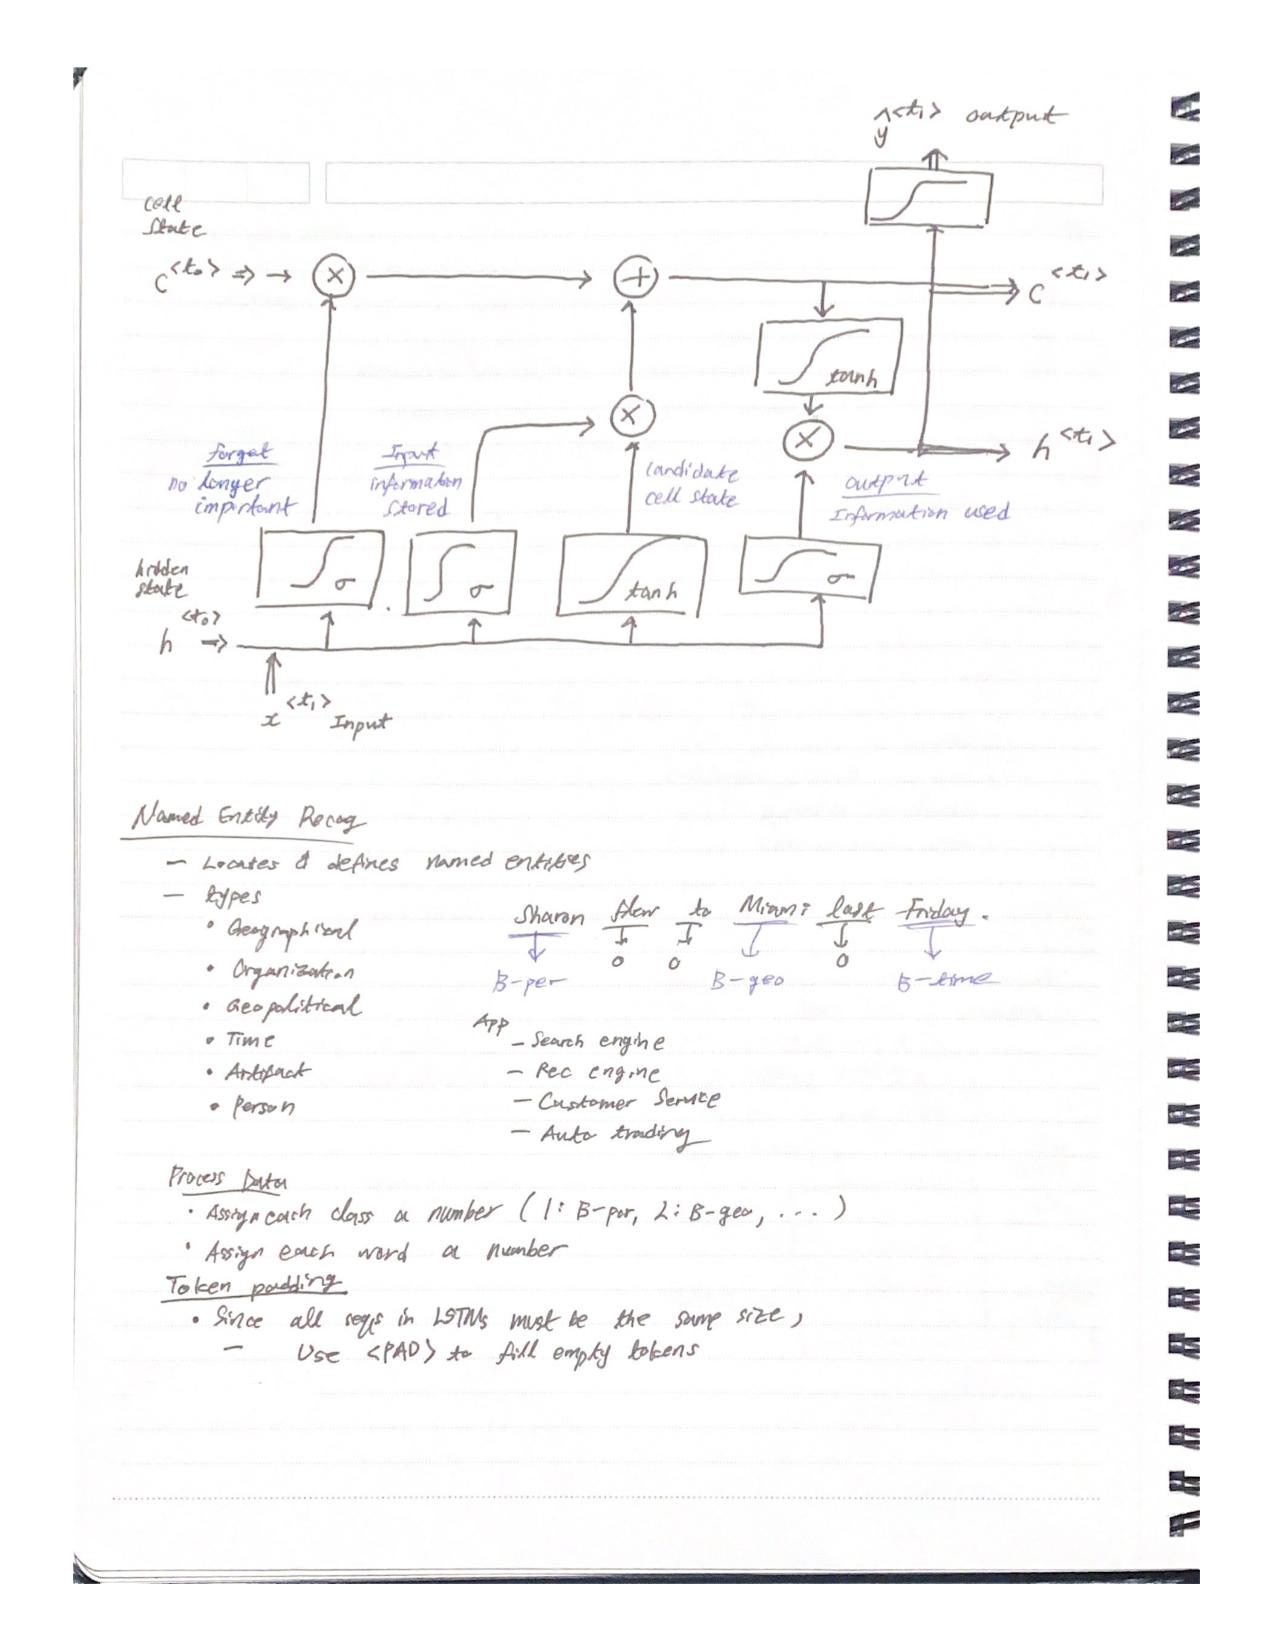 ŷ<t₁> output
cell
state
C<t₀> ⇒ → × → + → C<t₁>
tanh
×
×
h<t₁>
forget
no longer
important
Input
information
stored
candidate
cell state
output
Information used
hidden
state
σ
σ
tanh
σ
h<t₀> →
x<t₁> Input
Named Entity Recog
— Locates & defines named entities
— types
• Geographical
• Organization
• Geopolitical
• Time
• Artifact
• Person
Sharon flew to Miami last Friday.
B-per O O B-geo O B-time
App
— Search engine
— Rec engine
— Customer Service
— Auto trading
Process Data
• Assign each class a number (1: B-per, 2: B-geo, ...)
• Assign each word a number
Token padding
• Since all seqs in LSTMs must be the same size,
— Use <PAD> to fill empty tokens